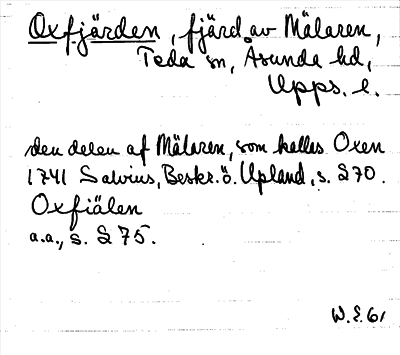 Oxfjärden, fjärd av Mälaren,
Teda sn, Åsunda hd,
Upps. l.
den delen af Mälaren, som kalles Oxen
1741 Salvius, Beskr. ö. Upland, s. 270.
Oxfiälen
a.a., s. 275.
W.E. 61